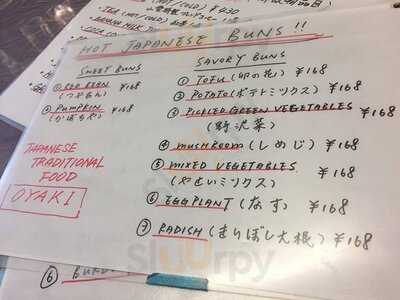 TEA (HOT/COLD) ¥430
BANANA MILK
HOT JAPANESE BUNS!!
SWEET BUNS
① RED BEAN ¥168
(つぶあん)
② PUMPKIN ¥168
(かぼちゃ)
JAPANESE
TRADITIONAL
FOOD
OYAKI
SAVORY BUNS
① TOFU (卯の花) ¥168
② POTATO (ポテトミックス) ¥168
③ PICKLED GREEN VEGETABLES ¥168
(野沢菜)
④ MUSHROOM (しめじ) ¥168
⑤ MIXED VEGETABLES ¥168
(やさいミックス)
⑥ EGGPLANT (なす) ¥168
⑦ RADISH (きりぼし大根) ¥168
⑥